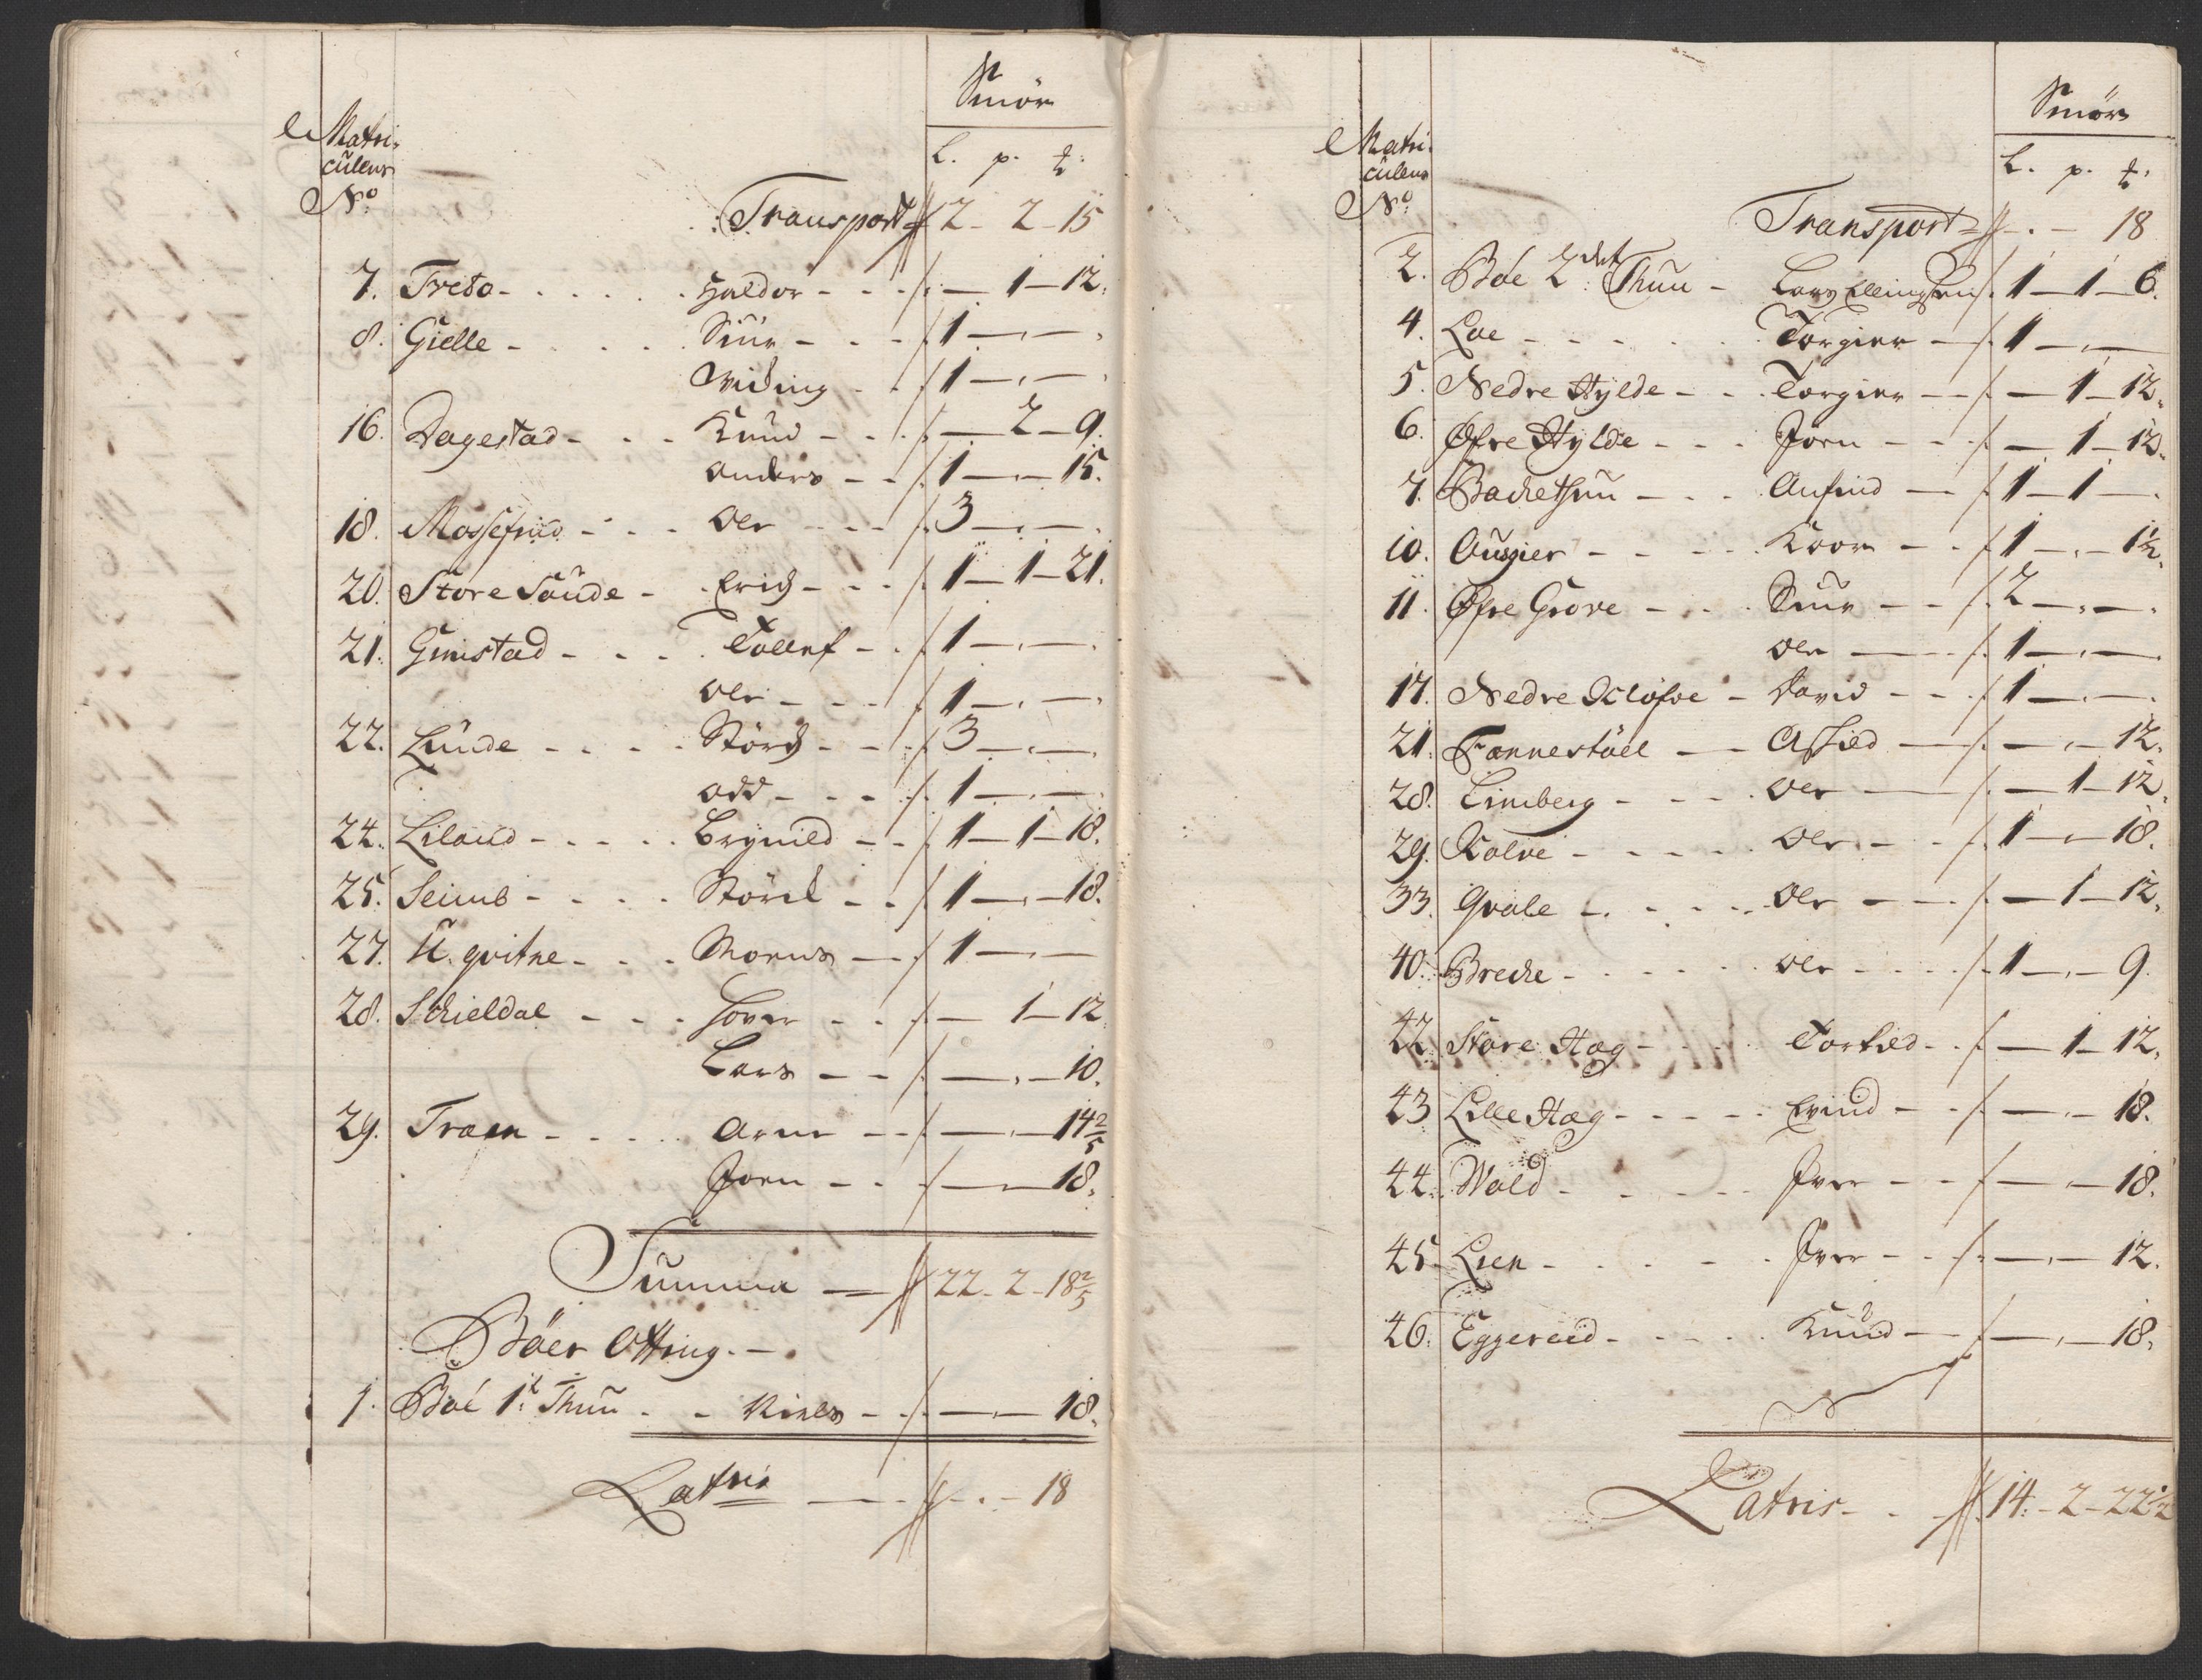 Smör
Matri-
culens
No
L. p. ℔:
Transport 2 - 2 - 15
7. Treto - Haldor - — 1 — 12.
8. Gielle - Siur - 1 — " —
Wiching - 1 — " —
16. Dagestad - Knud - — 2 — 9.
Anders - 1 — " — 15.
18. Mossefind - Ole - 3 — " —
20. Store Saude - Erich - 1 — 1 — 21.
21. Gimstad - Tollef - 1 — " —
Ole - 1 — " —
22. Lunde - Störch - 3 — " —
Odd - 1 — " —
24. Liland - Brynild - 1 — 1 — 18.
25. Seimb - Störch - 1 — " — 18.
27. U. qvitne - Mons - 1 — " —
28. Schieldal - Sover - — 1 — 12
Lars - — " — 10.
29. Traen - Arne - — " — 14 2/5
Joen - — " — 18.
Summa — 22 - 2 - 18 2/5
Böer Otting. -
1. Boe 1t Thun - Niels - — " — 18.
Latris - " - 18
Smör
Matri-
culens
No
L. p. ℔:
Transport - " - 18
2. Boe 2det Thun - Lars Ellingsen 1 — 1 — 6.
4. Loe - Torgier - 1 — " —
5. Nedre Hylde - Torgier - — 1 — 12.
6. Øfre Hylde - Joen - — 1 — 12.
7. Bachethun - Anfind - 1 — 1 —
10. Ougier - Koor - 1 — " — 1½.
11. Øfre Grove - Siur - 2 — " —
Ole - 1 — " —
17. Nedre Kløfve - David - 1 — " —
21. Fannestöel - Aschild - — " — 12.
28. Timberg - Ole - — 1 — 12.
29. Kalve - Ole - 1 — " — 18.
33. Qvale - Ole - — 1 — 12.
40. Breche - Ole - 1 — " — 9.
42. Store Hæg - Torkild - — 1 — 12.
43 Lille Hæg - Evind - — " — 18.
44. Wold - Iver - — " — 18.
45. Lien - Iver - — " — 12.
46. Eggereid - Knud - — " — 18.
Latris - 14 - 2 - 22½